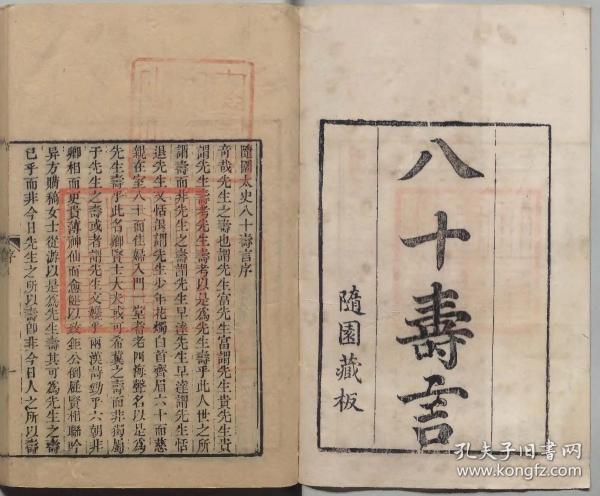 八十壽言
隨園藏板
隨園太史八十壽言序
奇哉先生之壽也謂先生富先生富謂先生貴先生貴
謂先生壽考先生壽考以是爲先生壽乎此人世之所
謂壽而非先生之壽謂先生早達先生早達謂先生恬
退先生又恬退謂先生少年花燭白首齊眉六十而慈
親在室八十而佳婦入門一堂耆老四海聲名以是爲
先生壽乎此名卿賢士大夫或可希冀之壽而非獨屬
于先生之壽或者謂先生文雄乎兩漢詩勁乎六朝非
卿相而更貴薄神仙而愈以致鉅公倒屣賢相聯吟
异方購稿女士從游以是爲先生壽其可爲先生之壽
已乎而非今日先生之所以壽卽非今日人之所以壽
序
一
孔夫子旧书网
www.kongfz.com